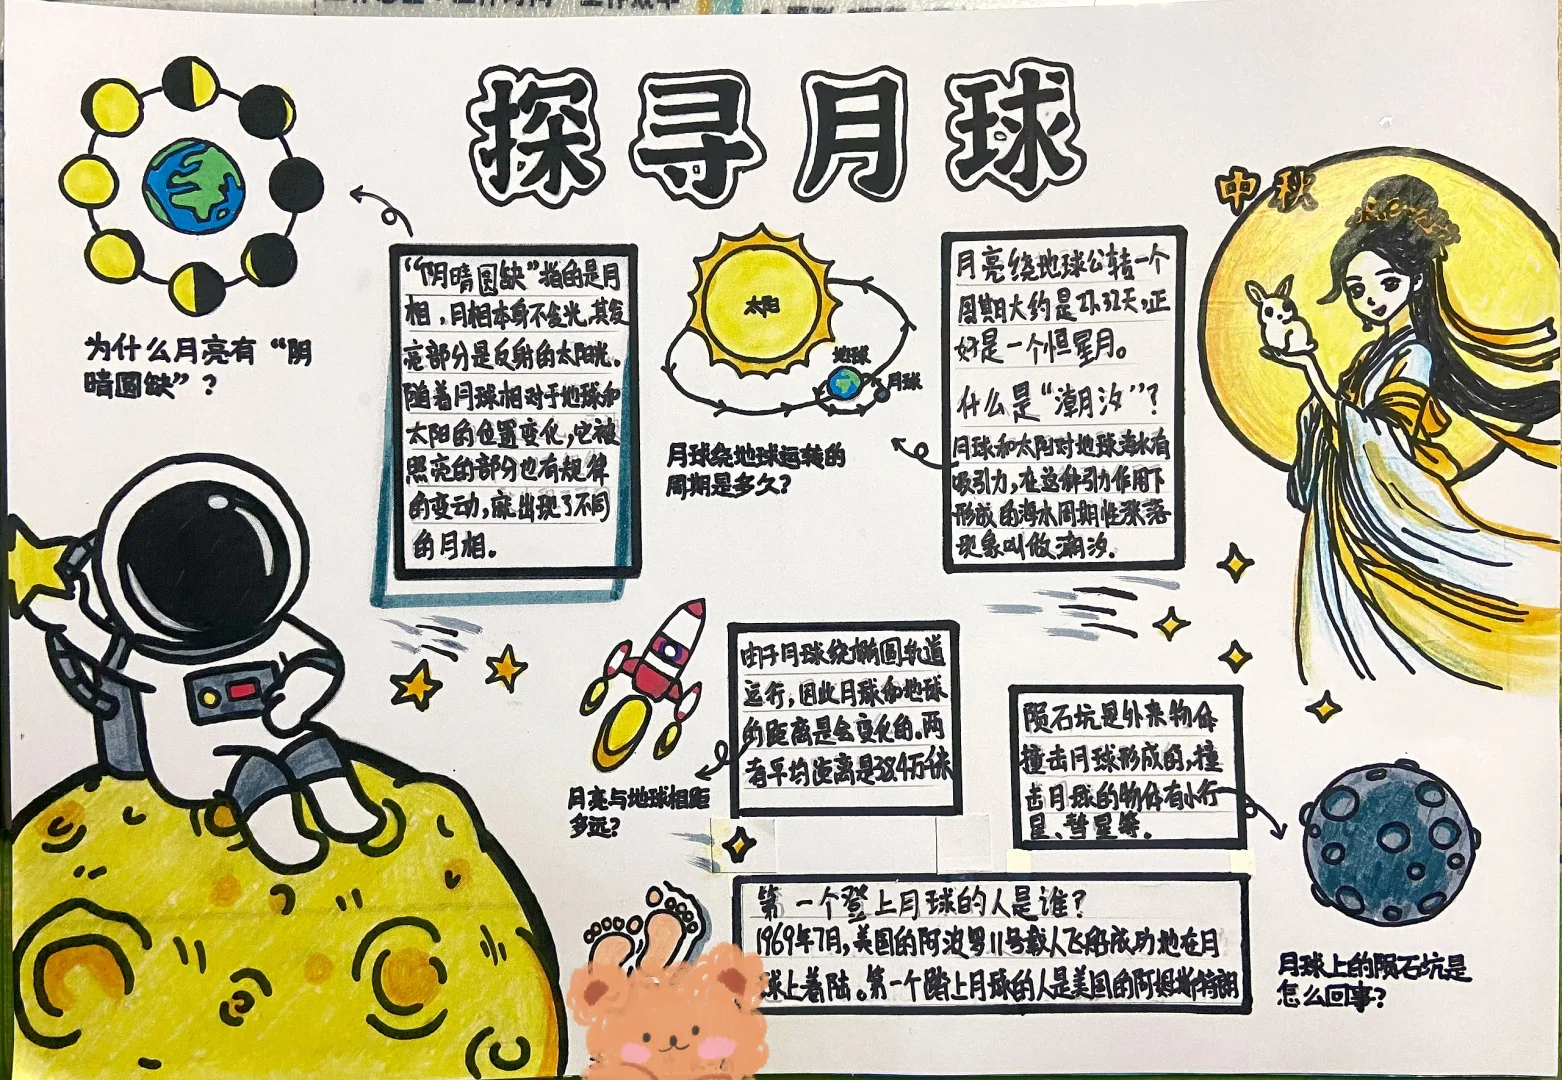 探寻月球
中秋
为什么月亮有“阴
晴圆缺”?
“阴晴圆缺”指的是月
相,月相本身不发光,其发
亮部分是反射的太阳光。
随着月球相对于地球和
太阳的位置变化,它被
照亮的部分也有规律
的变动,就出现了不同
的月相。
太阳
地球
月球
月球绕地球运转的
周期是多久?
月亮绕地球公转一个
周期大约是27.32天,正
好是一个恒星月。
什么是“潮汐”?
月球和太阳对地球海水有
吸引力,在这种引力作用下
形成的海水周期性涨落
现象叫做潮汐.
月亮与地球相距
多远?
由于月球绕椭圆轨道
运行,因此月球和地球
的距离是会变化的.两
者平均距离是38.4万千米
陨石坑是外来物体
撞击月球形成的,撞
击月球的物体有小行
星、彗星等.
月球上的陨石坑是
怎么回事?
第一个登上月球的人是谁?
1969年7月,美国的阿波罗11号载人飞船成功地在月
球上着陆。第一个踏上月球的人是美国的阿姆斯特朗